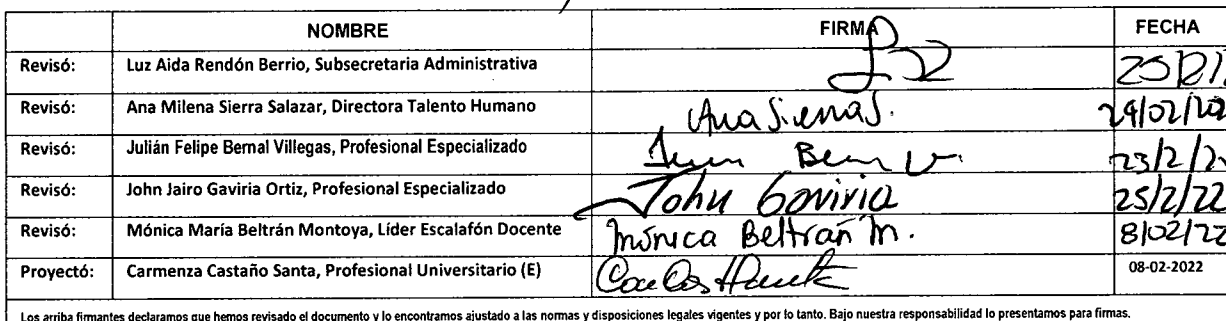 NOMBRE FIRMA FECHA
Revisó: Luz Aida Rendón Berrio, Subsecretaria Administrativa
Revisó: Ana Milena Sierra Salazar, Directora Talento Humano Ana Sierra S. 24/02/202
Revisó: Julián Felipe Bernal Villegas, Profesional Especializado 23/2/2
Revisó: John Jairo Gaviria Ortiz, Profesional Especializado John Gaviria 25/2/22
Revisó: Mónica María Beltrán Montoya, Líder Escalafón Docente Mónica Beltrán M. 8/02/22
Proyectó: Carmenza Castaño Santa, Profesional Universitario (E) 08-02-2022
Los arriba firmantes declaramos que hemos revisado el documento y lo encontramos ajustado a las normas y disposiciones legales vigentes y por lo tanto. Bajo nuestra responsabilidad lo presentamos para firmas.